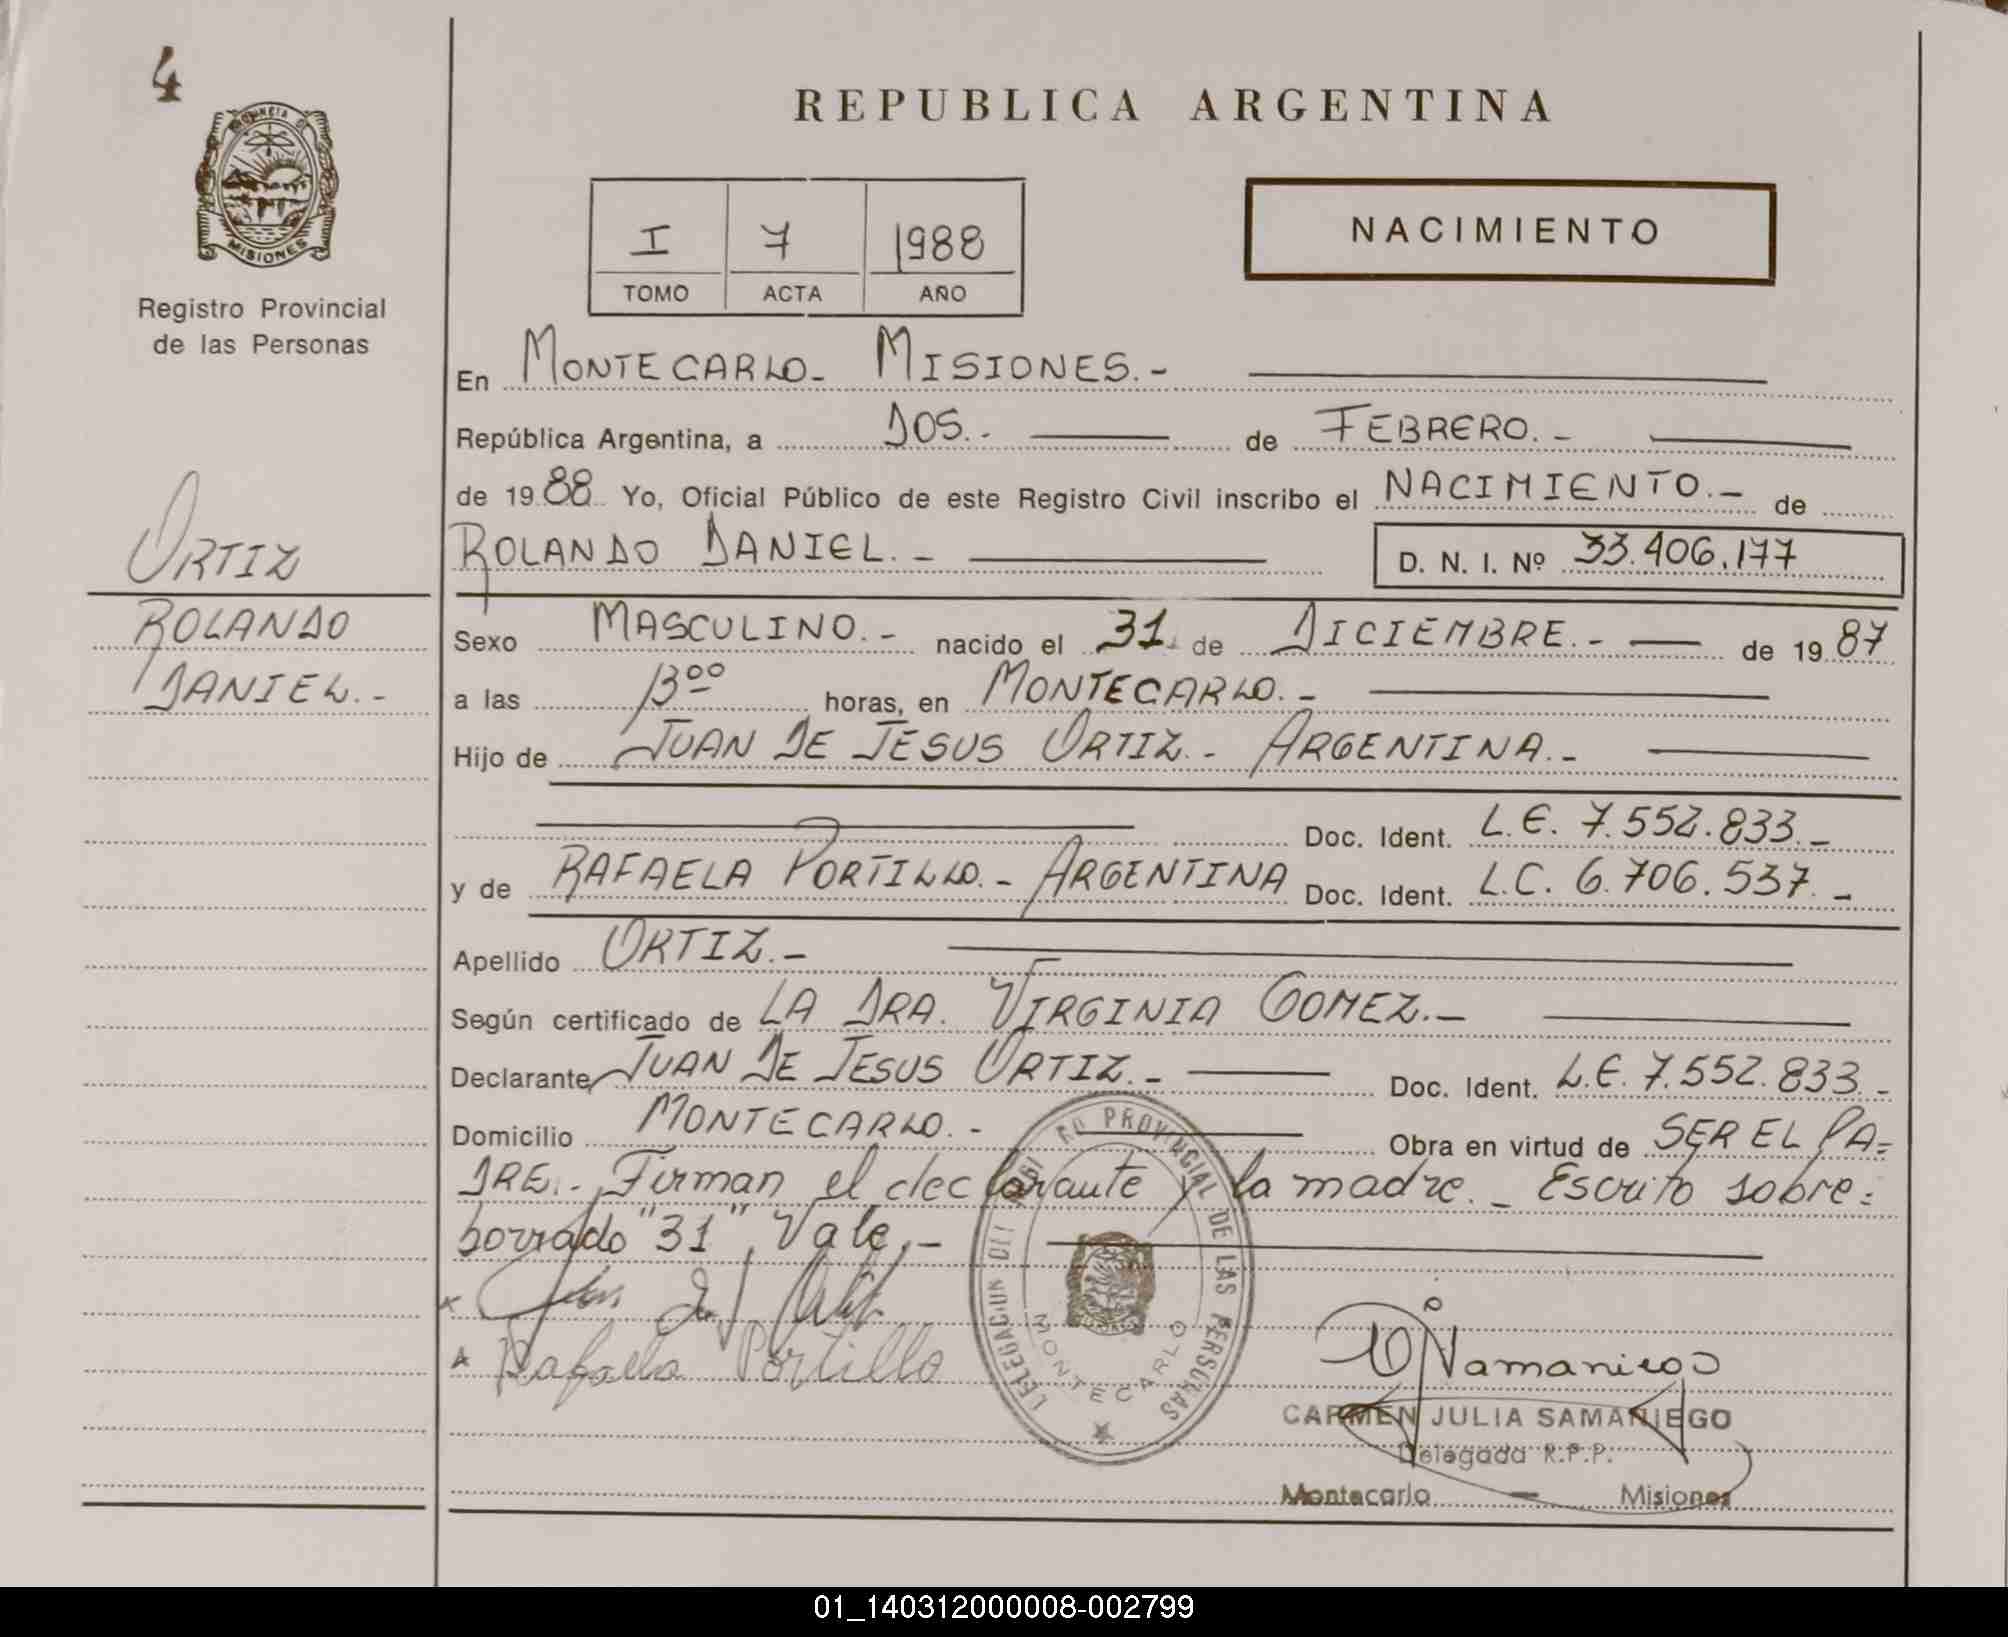 4
PROVINCIA DE
MISIONES
Registro Provincial
de las Personas
ORTIZ
ROLANDO
DANIEL.-
REPUBLICA ARGENTINA
I 7 1988
TOMO ACTA AÑO
NACIMIENTO
En MONTECARLO- MISIONES.-
República Argentina, a DOS.- de FEBRERO.-
de 1988 Yo, Oficial Público de este Registro Civil inscribo el NACIMIENTO.- de
ROLANDO DANIEL.- D. N. I. Nº 33.406.177
Sexo MASCULINO.- nacido el 31 de DICIEMBRE.- de 1987
a las 13ºº horas, en MONTECARLO.-
Hijo de JUAN DE JESUS ORTIZ.- ARGENTINA.-
Doc. Ident. L.E. 7.552.833.-
y de RAFAELA PORTILLO.- ARGENTINA Doc. Ident. L.C. 6.706.537.-
Apellido ORTIZ.-
Según certificado de LA DRA. VIRGINIA GOMEZ.-
Declarante JUAN DE JESUS ORTIZ.- Doc. Ident. L.E. 7.552.833.-
Domicilio MONTECARLO.- Obra en virtud de SER EL PA=
DRE.- Firman el declarante y la madre.- Escrito sobre=
borrado "31", Vale.-
Rafaela Portillo
PROVINCIAL DE LAS PERSONAS
MONTECARLO
CARMEN JULIA SAMANIEGO
Delegada R.P.P.
Montecarlo - Misiones
01_140312000008-002799